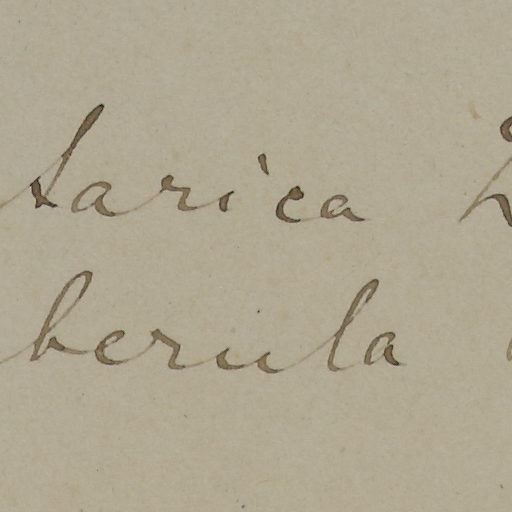 sarica
berula